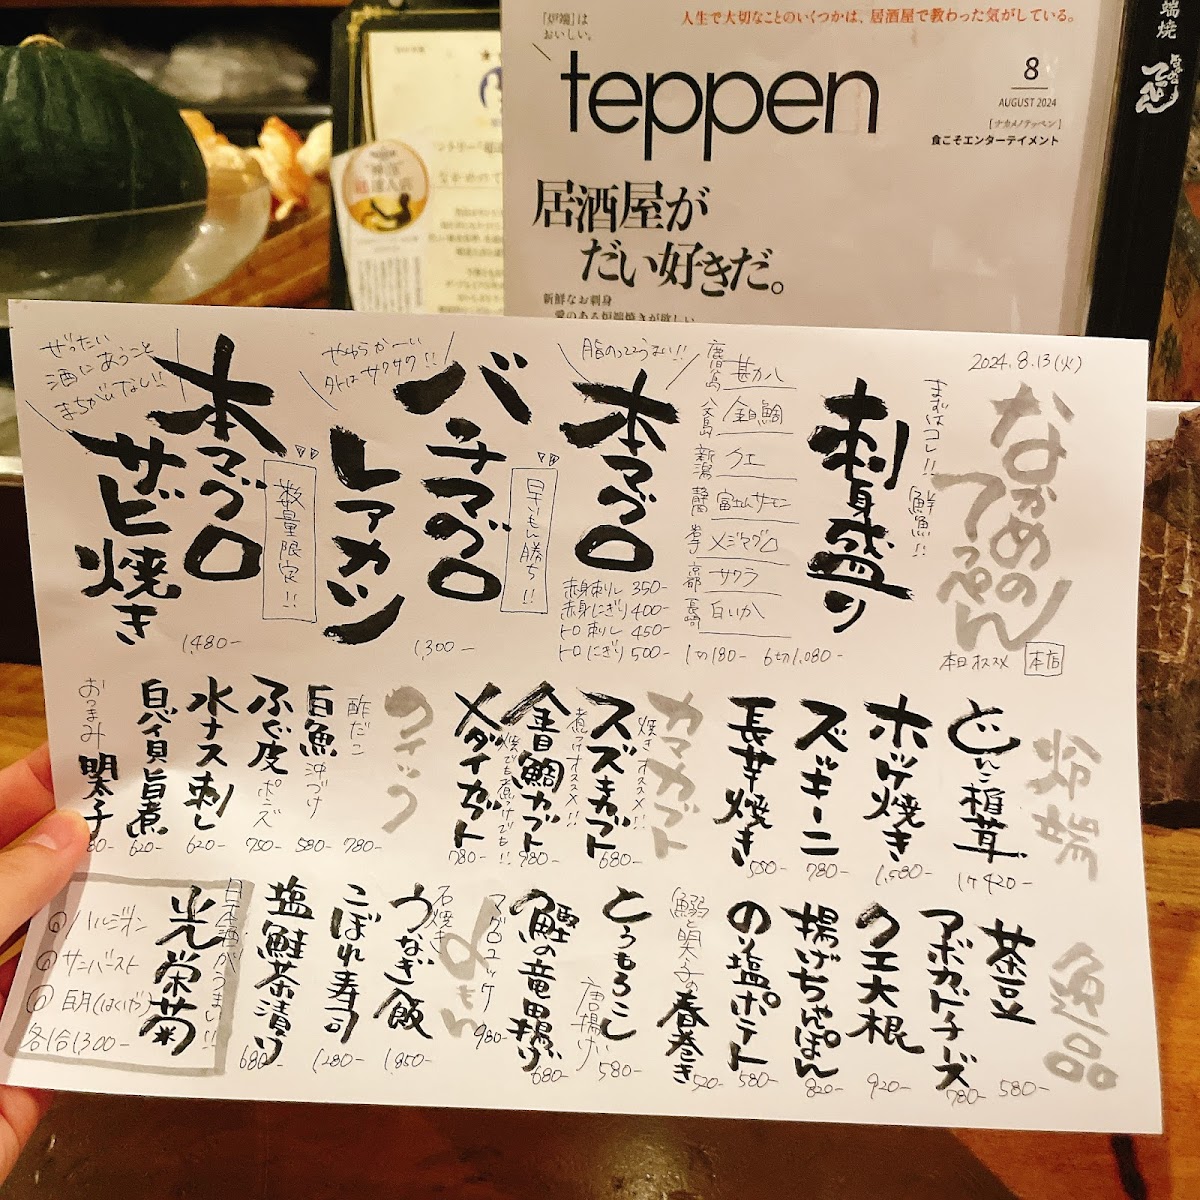 「炉端」は
おいしい。
人生で大切なことのいくつかは、居酒屋で教わった気がしている。
teppen
8
AUGUST 2024
[ナカメノテッペン]
食こそエンターテイメント
居酒屋が
だい好きだ。
新鮮なお刺身
端焼
てっぺん
2024.8.13(火)
なかめの
てっぺん
本日オススメ
本店
まずはコレ!!
鮮魚!!
刺身盛り
鹿児島 甚カハ
八丈島 金目鯛
新潟 クエ
静岡 富士山サーモン
岩手 メジマグロ
京都 サワラ
長崎 白いか
1切180- 6切1,080-
脂のってうまい!!
本マグロ
赤身刺し 350-
赤身にぎり 400-
トロ刺し 450-
トロにぎり 500-
早いもん勝ち!!
やわらかーい
外はサクサク!!
バチマグロ
レアカツ
1,300-
数量限定!!
ぜったい
酒にあうこと
まちがいなし!!
本マグロ
サビ焼き
1,480-
炉端
どんこ椎茸
1ケ420-
ホッケ焼き
1,580-
ズッキーニ
780-
長芋焼き
550-
カマカブト
焼きオススメ!!
スズキカブト
680-
煮つけオススメ!!
金目鯛カブト
980-
焼でも煮つけでも!!
メダイカブト
780-
クイック
酢だこ
780-
白魚沖づけ
580-
ふぐ皮ポンズ
750-
水ナス刺し
620-
白バイ貝旨煮
620-
おつまみ明太子
80-
逸品
茶豆
580-
アボカドチーズ
780-
クエ大根
920-
揚げちゃんぽん
820-
のり塩ポテト
580-
鰯と明太子の春巻き
520-
とうもろこし唐揚げ
580-
鰹の竜田揚げ
680-
マグロユッケ
980-
〆もん
石焼き
うなぎ飯
1,850-
こぼれ寿司
1,280-
塩鮭茶漬け
680-
日本酒がうまし!!
光栄菊
ハルジオン
サンバースト
白月(はくげつ)
各1合1,300-